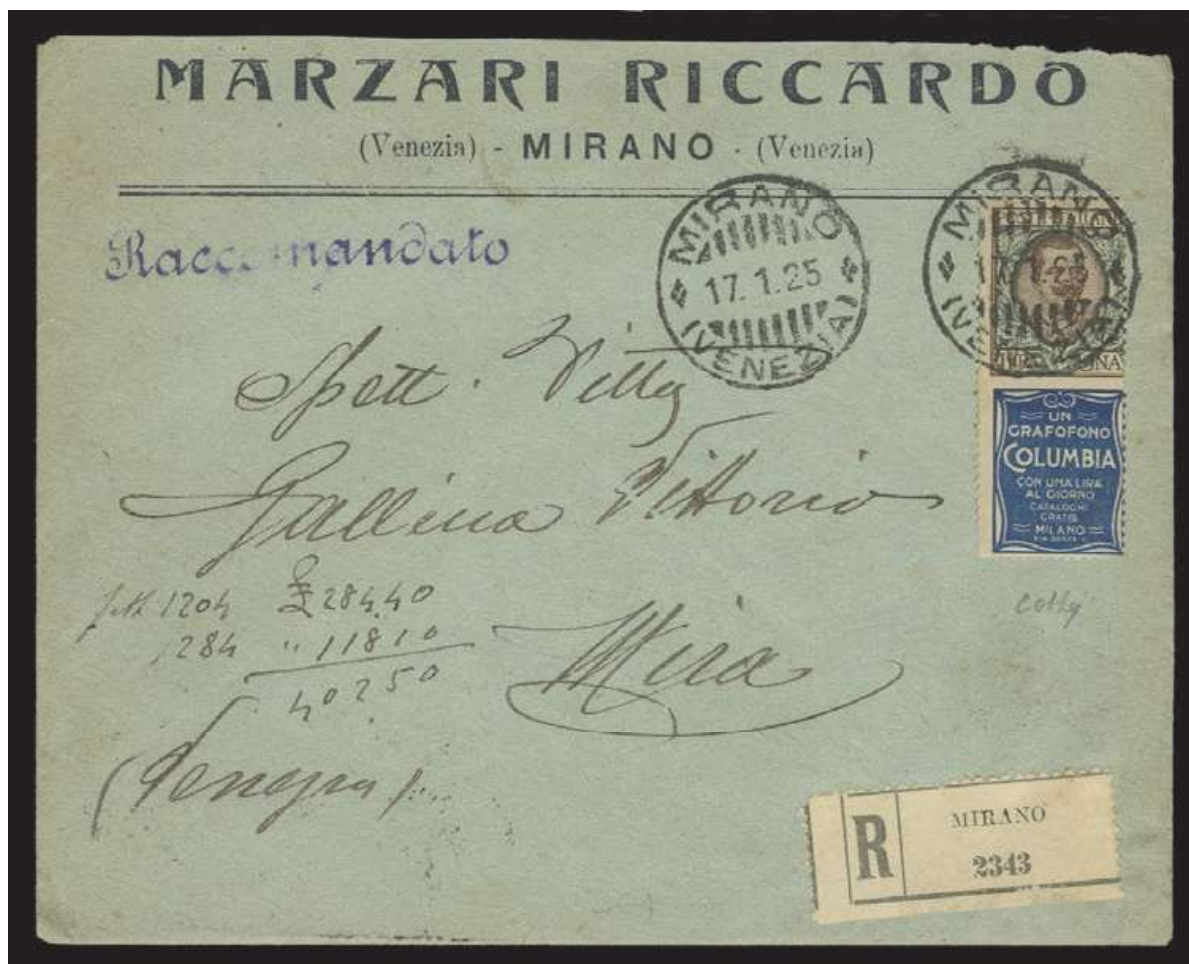 MARZARI RICCARDO
(Venezia) - MIRANO - (Venezia)
Raccomandato
MIRANO
17.1.25
(VENEZIA)
MIRANO
17.1.25
(VENEZIA)
UN
GRAFOFONO
COLUMBIA
CON UNA LIRA
AL GIORNO
CATALOGHI
GRATIS
MILANO
Spett. Ditta
Gallina Vittorio
1204 £ 284.40
284 " 118 10
402 50
Mira
(Venezia)
R
MIRANO
2343